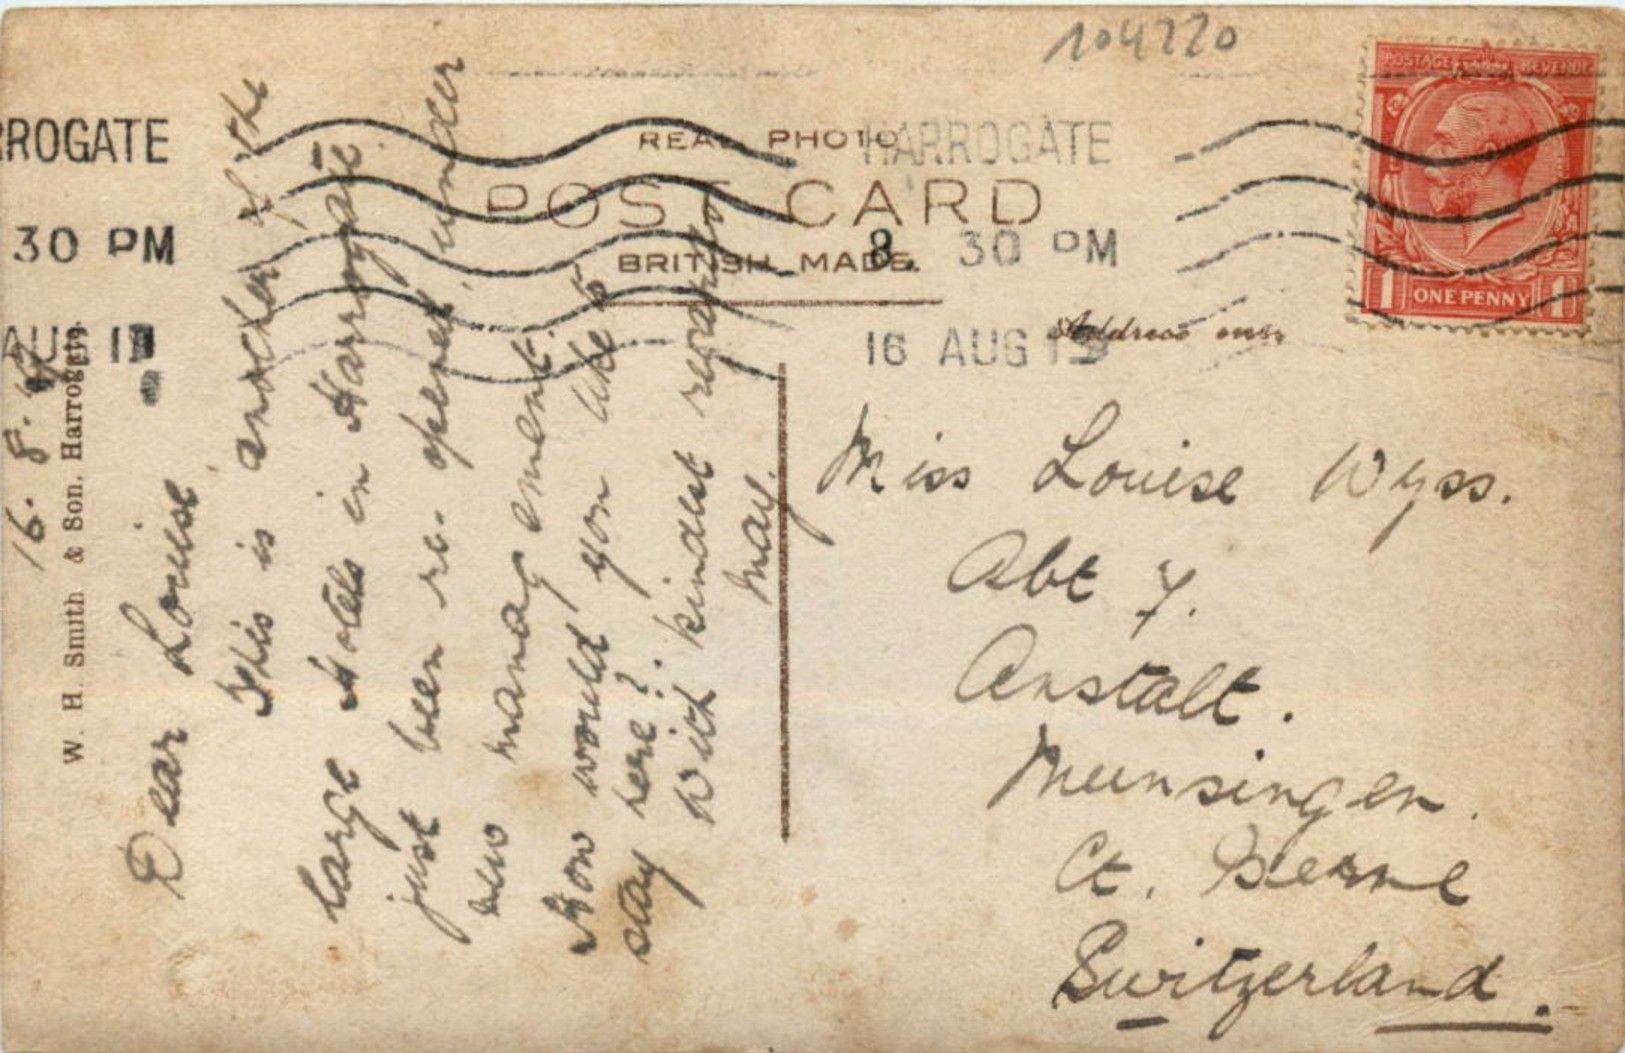 104220
REAL PHOTO
POST CARD
BRITISH MADE.
Address only
HARROGATE
8. 30 PM
16 AUG 19
ROGATE
30 PM
AUG 1
POSTAGE REVENUE
1 ONE PENNY 1
W. H. Smith & Son. Harrogate.
16. 8.
Dear Louise
This is another of the
large Hotels in Harrogate.
just been re-opened under
new management.
How would you like to
stay here?
With kindest regards
May.
Miss Louise Wyss.
Abt 7.
Anstalt.
Meunsingen.
Ct. Berne
Switzerland.